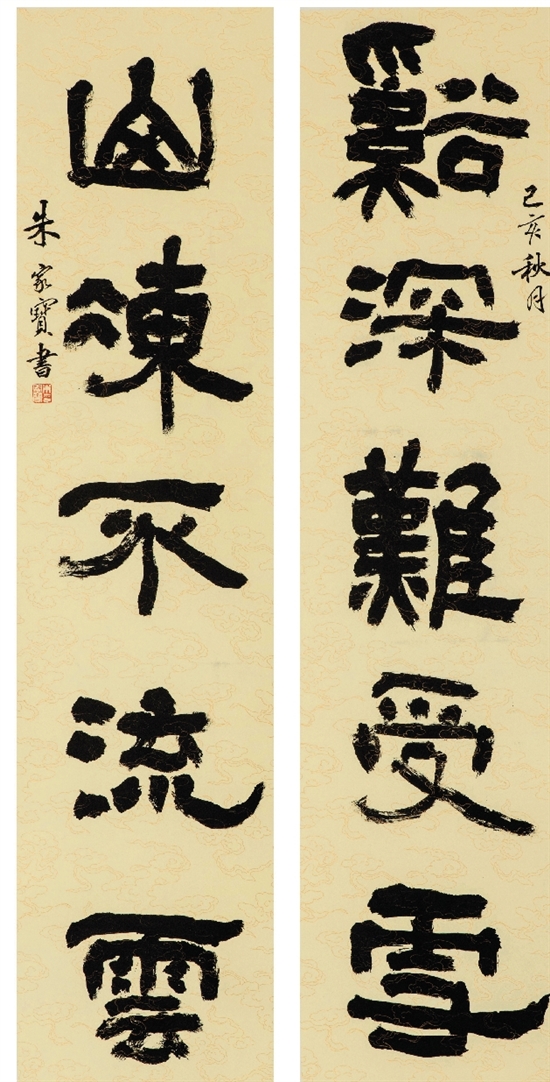 己亥秋月
谿深難受雪
山凍不流雲
朱家寶書